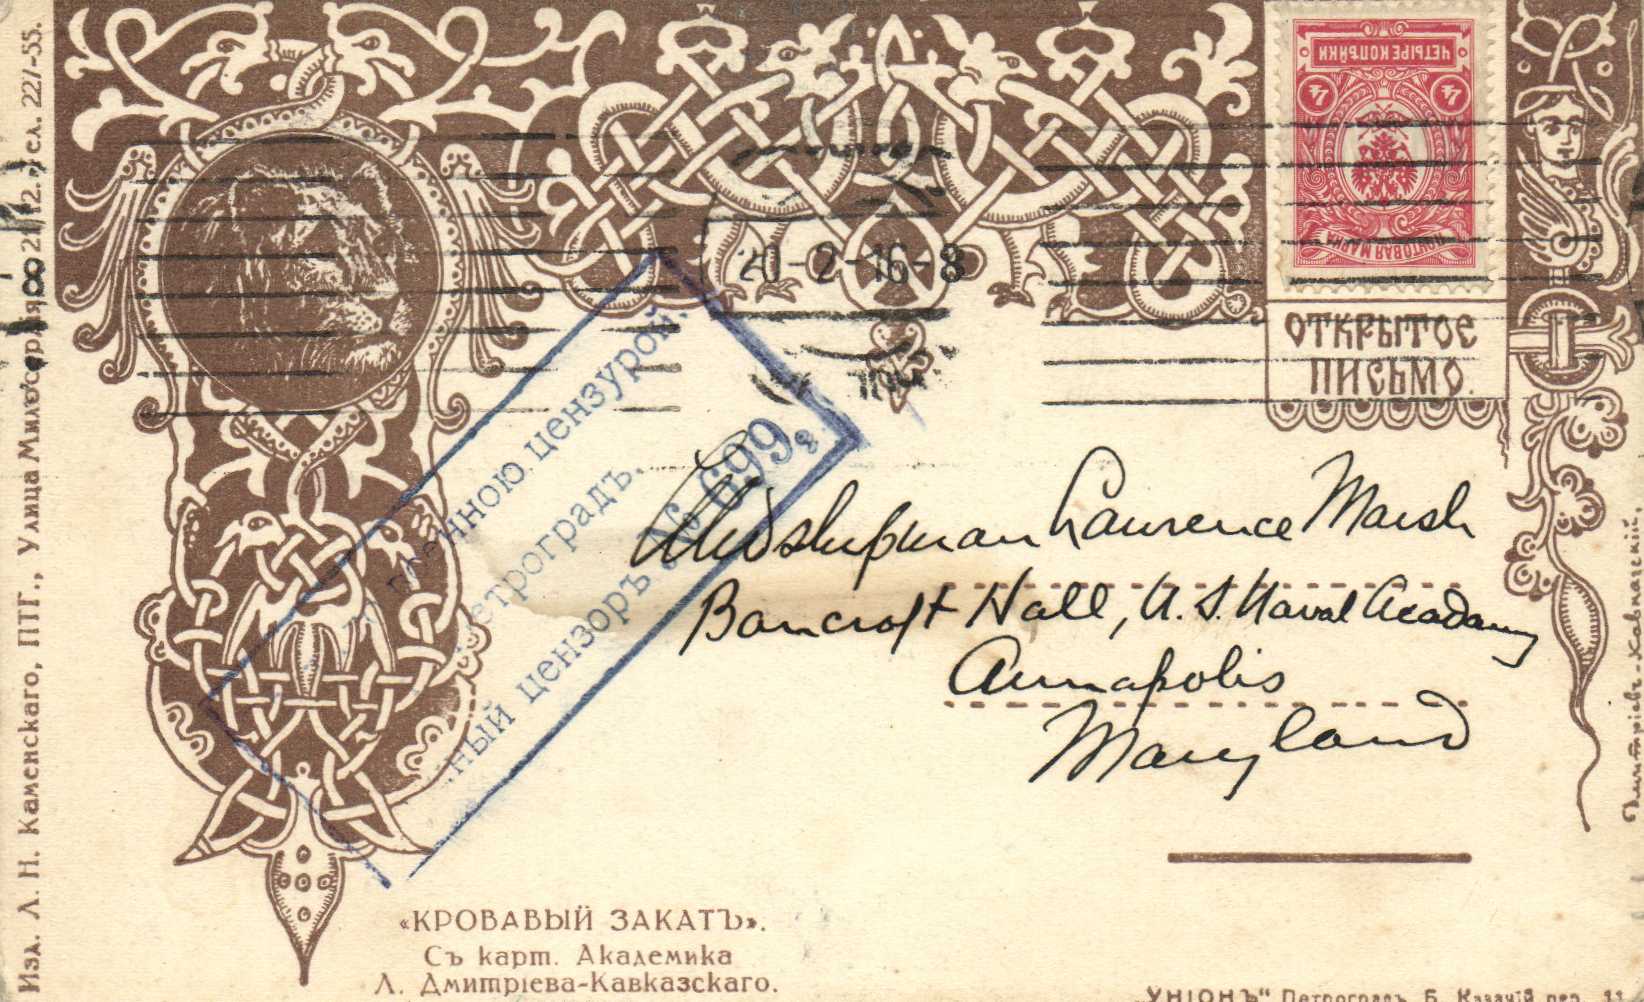 Изд. Л. Н. Каменскаго, ПТГ., Улица Милосердія, 8. Тел. 227-55.
ЧЕТЫРЕ КОПѢЙКИ
4 4
ПОЧТОВАЯ МАРКА
20-2-16-8
ОТКРЫТОЕ
ПИСЬМО.
военною цензурой.
Петроградъ.
цензоръ № 699.
Midshipman Lawrence Marsh
Bancroft Hall, U.S. Naval Academy
Annapolis
Maryland
Дмитріевъ-Кавказскій.
«КРОВАВЫЙ ЗАКАТЪ».
Съ карт. Академика
Л. Дмитріева-Кавказскаго.
„УНІОНЪ" Петроградъ, Б. Казачій пер. 11